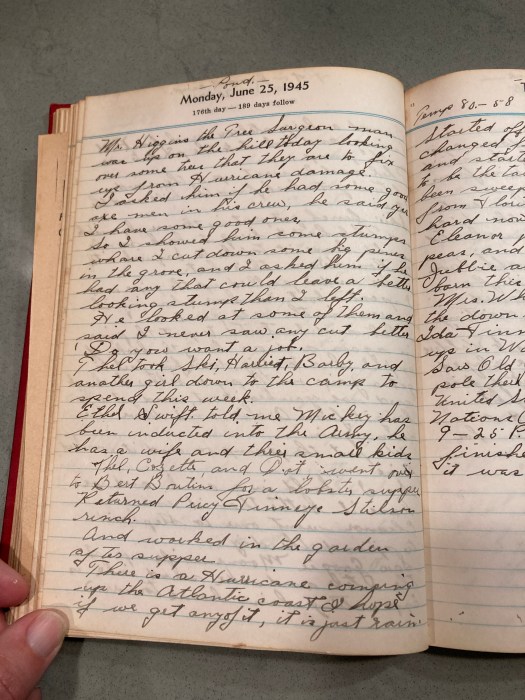 Monday, June 25, 1945
176th day — 189 days follow
Mr. Higgins the Tree Surgeon man
was up on the hill today looking
over some trees that they are to fix
up from Hurricane damage.
I asked him if he had some good
axe men in his crew, he said yes
I have some good ones
So I showed him some stumps
where I cut down some big pines
in the grove, and I asked him if he
had any that could leave a better
looking stump than I left.
He looked at some of them and
said I never saw any cut better
Do you want a job.
Thel took Ski, Harriet, Barby, and
another girl down to the camp to
spend this week.
Ethel Swift told me Mickey has
been inducted into the Army, he
has a wife and three small kids
Thel, Cozette and Dot went over
to Bert Boutins for a lobster supper
Returned Pucy Finneys Stilson
rench.
And worked in the garden
after supper.
There is a Hurricane comeing
up the Atlantic coast I hope
if we get any of it, it is just rain.
Temp 80.- 58
Started of
changed f
and star
to, be the ta
been swee
from Flori
hard now
Eleanor p
peas, and
Jubbie a
barn this
Mrs. Wh
the down
Ida Finn
up in W
Saw Old
pole their
United S
Nations
9-25 P
finishe
it was